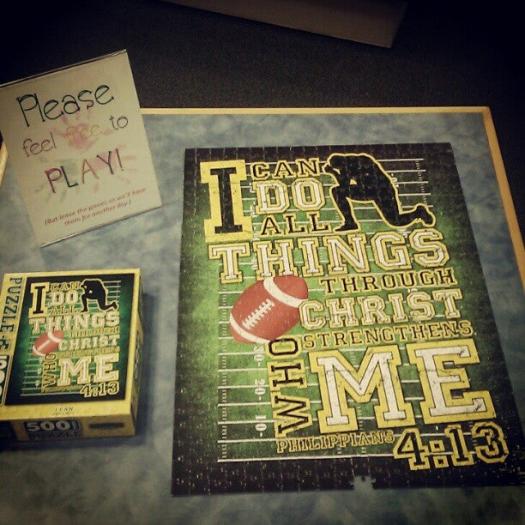 Please
feel free to
PLAY!
(But leave the games, so we'll have
them for another day.)
PUZZLE
I CAN
DO
ALL
THINGS
CHRIST
WHO
ME
4:13
500
PUZZLE
I CAN
DO
ALL
THINGS
THROUGH
CHRIST
WHO STRENGTHENS
ME
20
10
PHILIPPIANS 4:13